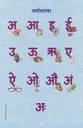 वर्णमाला
अ आ इ ई
उ ऊ ऋ ए
ऐ ओ औ अं
अः